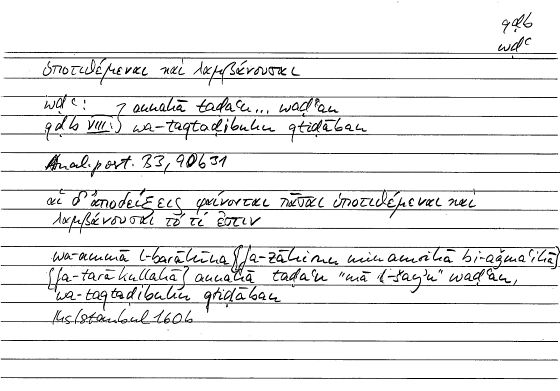 qḍb
wḍʿ
ὑποτιθέμεναι καὶ λαμβάνουσαι
wḍʿ : } annahā taḍaʿu... waḍʿan
qḍb VIII: } wa-taqtaḍibuhu qtiḍāban
Anal. post. B3, 90b31
αἱ δ' ἀποδείξεις φαίνονται πᾶσαι ὑποτιθέμεναι καὶ
λαμβάνουσαι τὸ τί ἐστιν
wa-ammā l-barāhīnu {fa-ẓāhirun min amrihā bi-aǧmaʿihā}
{fa-tarā kullahā} annahā taḍaʿu "mā l-šayʾu" waḍʿan,
wa-taqtaḍibuhu qtiḍāban
Istanbul 160b